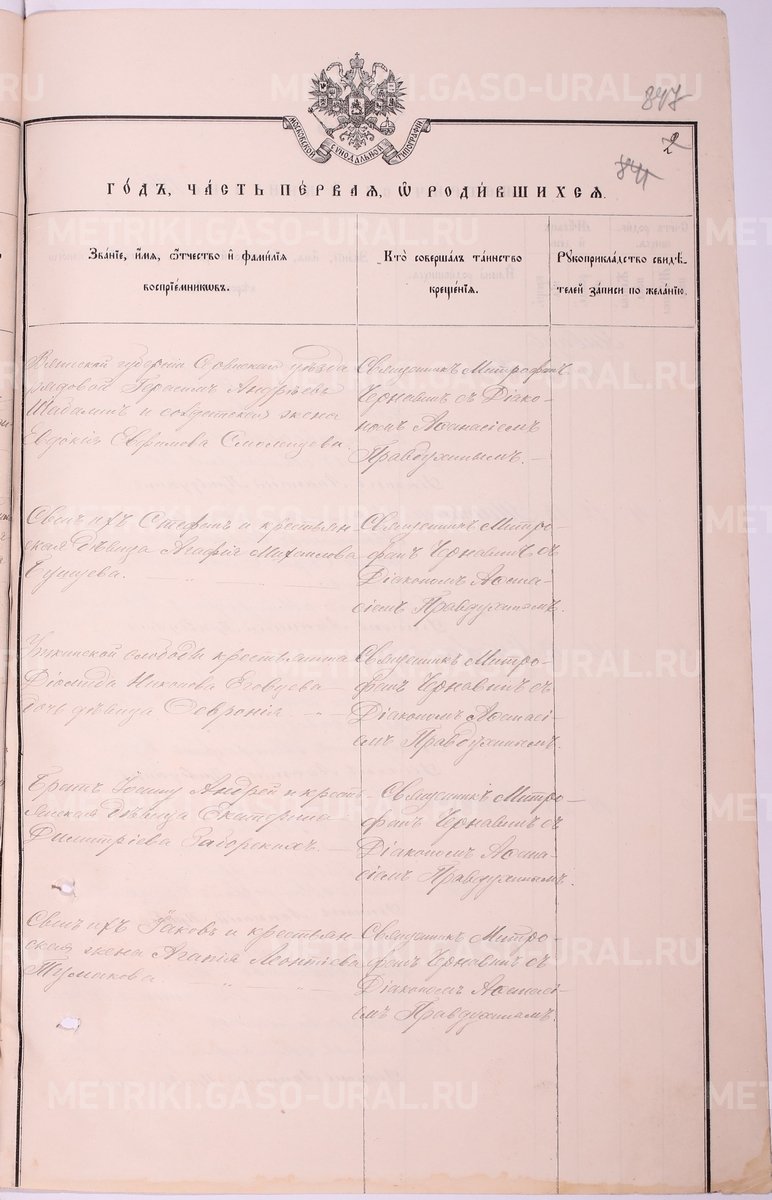 METRIKI.GASO-URAL.RU
847
МОСКОВСКОЙ СѴНОДАЛЬНОЙ ТИПОГРАФІИ
2
841
ГО́ДЪ, ЧА́СТЬ ПЕ́РВАЯ, Ѽ РОДИ́ВШИХСЯ.
Зва́нїе, и҆́мя, ѻ҆́тчество и҆ фами́лїя
воспрїе́мникѡвъ.
Кто̀ соверша́лъ та́инство
креще́нїя.
Рꙋкоприкла́дство свидѣ́-
телей за́писи по жела́нїю.
Вятской губерніи Орловскаго уѣзда
рядовой Герасимъ Андреевъ
Шабалинъ и солдатская жена
Евдокія Ефремова
Священникъ Митрофанъ
Чернавинъ съ Діако-
номъ Аѳанасіемъ
Правдухинымъ.
Стефанъ и крестьян
ская дѣвица Агафія Михаилова
Священникъ Митро-
фанъ Чернавинъ съ
Діакономъ Аѳана-
сіемъ Правдухинымъ.
слободы крестьянина
Діомида Никонова
дочь дѣвица Ѳевронія.
Священникъ Митро-
фанъ Чернавинъ съ
Діакономъ Аѳанасі-
емъ Правдухинымъ.
Братъ Андрей и кресть-
янская дѣвица Екатерина
Димитріева
Священникъ Митро-
фанъ Чернавинъ съ
Діакономъ Аѳана-
сіемъ Правдухинымъ.
Іаковъ и крестьян
ская жена Агапія Леонтіева
Тумакова.
Священникъ Митро
фанъ Чернавинъ съ
Діакономъ Аѳанасі-
емъ Правдухинымъ.
METRIKI.GASO-URAL.RU